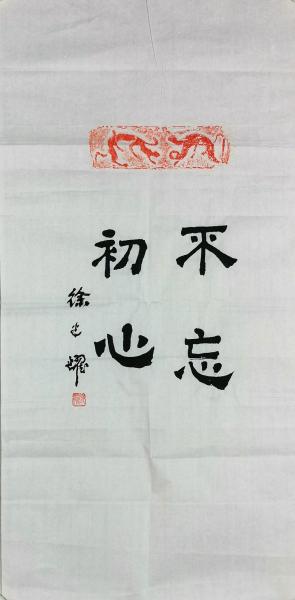 不忘
初心
徐建耀